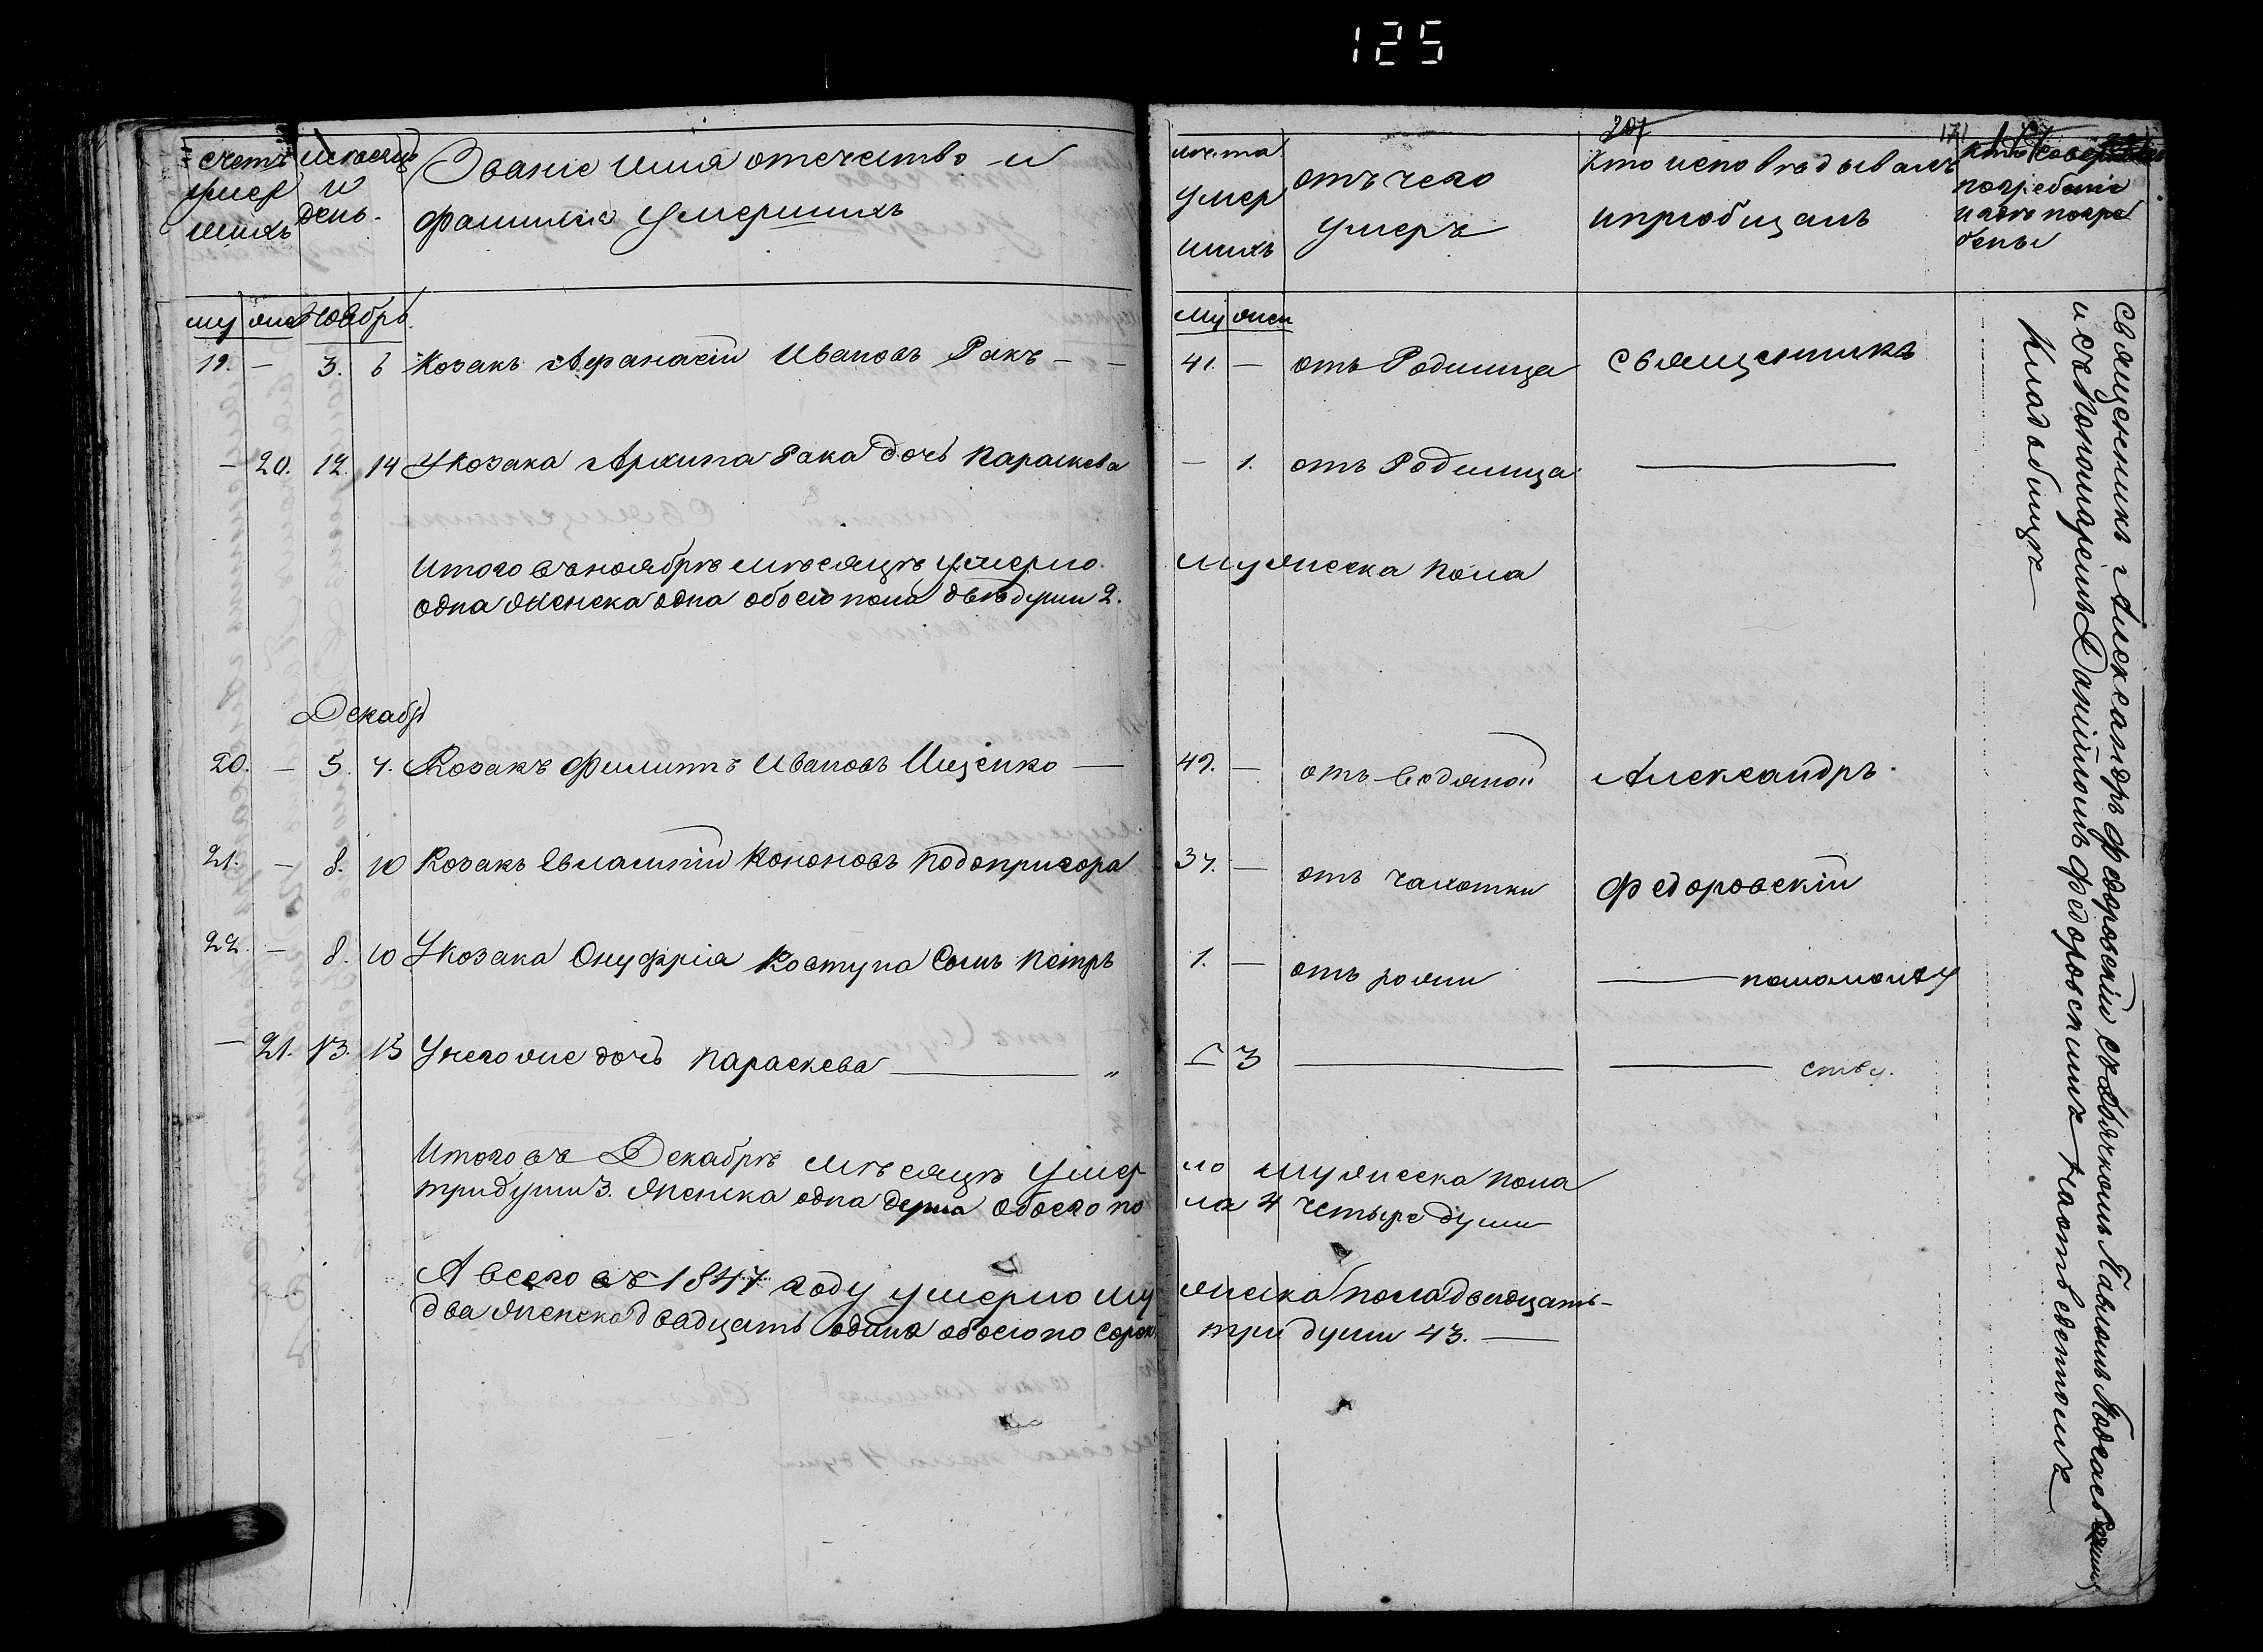 125
207
171
счетъ умер шихъ
месяцъ и день.
Званіе имя отечество и
фамиліе умершихъ
лѣта умер шихъ
отъ чего умеръ
кто исповѣдывалъ
и пріобщалъ
погребеніе
и где погре
бены
му жен Ноябрь
му жен
19. — 3. 6 Козакъ Афанасій Ивановъ Ракъ — — 41. — отъ Родимца Священникъ
— 20. 12. 14 У Козака Архипа Рака дочь Параскева — 1. отъ Родимца —
Итого въ ноябрѣ месяцѣ умерло мужеска пола
одна женска одна обоего пола двѣ души 2.
Декабрь
20. — 5. 7. Козакъ Филиппъ Ивановъ Ищенко — 49. — отъ Водяной Александръ
21. — 8. 10 Козакъ Евлампій Кононовъ Подопригора 37. — отъ чахотки Федоровскій
22. — 8. 10 У Козака Онуфрія Ковтуна Сынъ Петръ 1. — отъ рожи — по
— 21. 13. 15 У него же дочь Параскева — „ 3 — — ству.
Итого въ Декабрѣ месяцѣ умер ло мужеска пола
три души 3. женска одна душа обоего по ла 4 четыре души
А всего въ 1847 году умерло му жеска пола двадцать
два женска двадцать одина обоего по сорок три души 43. —
Священникъ Александръ Федоровскій съ дьячкомъ Павломъ
и съ Пономаремъ Даніиломъ Федоровскимъ на
Кладбищѣ